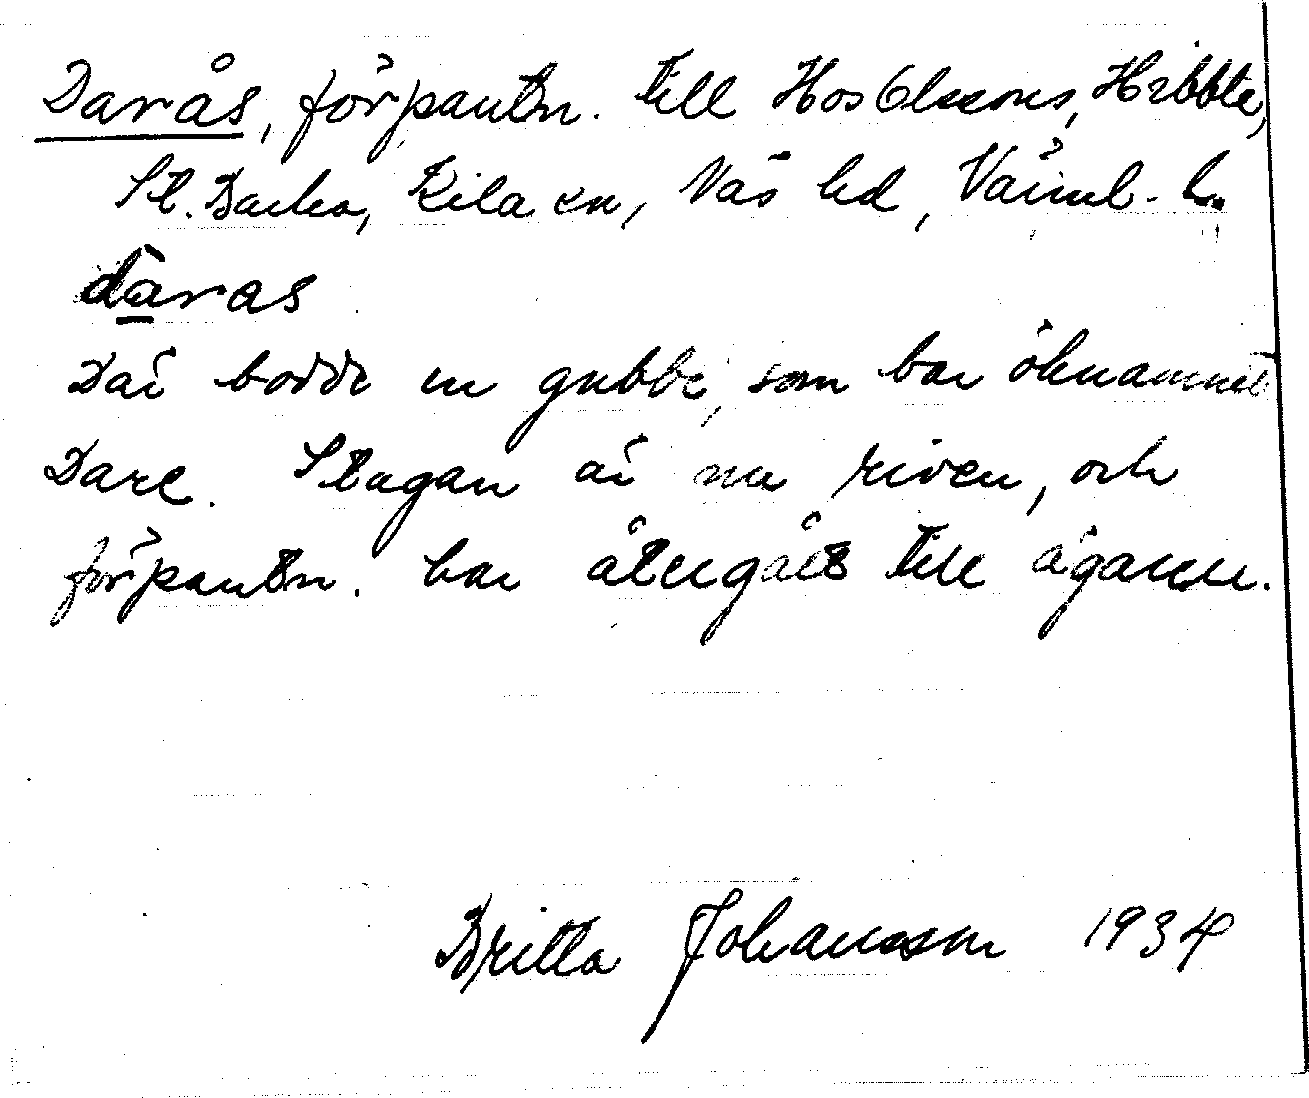 Darås, förpantn. till Hos Olssons, Hebbte,
St. Backa, Kila sn, Näs hd, Värml. l.
dàras
Där bodde en gubbe, som bar öknamnet
Dare. Stugan är nu riven, och
förpantn. har återgått till ägaren.
Britta Johansson 1934